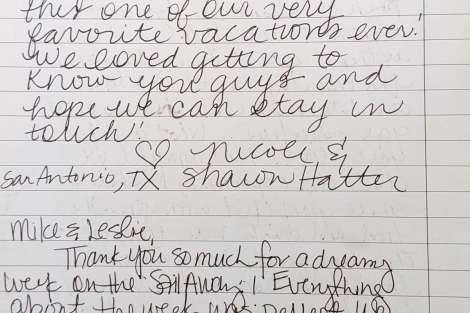 this one of our very
favorite vacations ever!
We loved getting to
know you guys and
hope we can stay in
touch!
♡ Nicole &
San Antonio, TX Shawn Hatter
Mike & Leslie,
Thank you so much for a dreamy
week on the Sail Away! Everything
about the week was